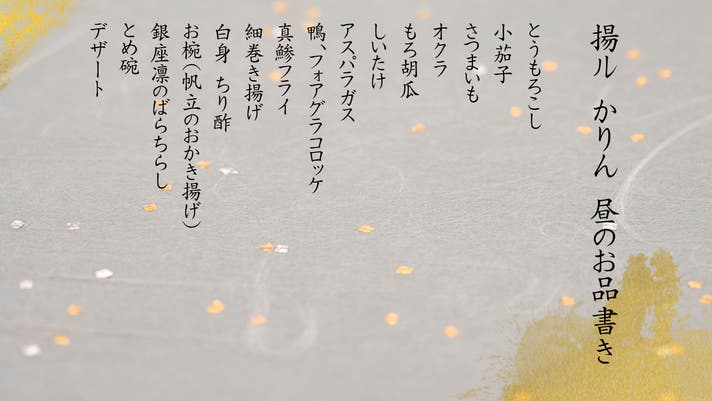 揚ル かりん 昼のお品書き
とうもろこし
小茄子
さつまいも
オクラ
もろ胡瓜
しいたけ
アスパラガス
鴨、フォアグラコロッケ
真鯵フライ
細巻き揚げ
白身 ちり酢
お椀(帆立のおかき揚げ)
銀座凛のばらちらし
とめ碗
デザート